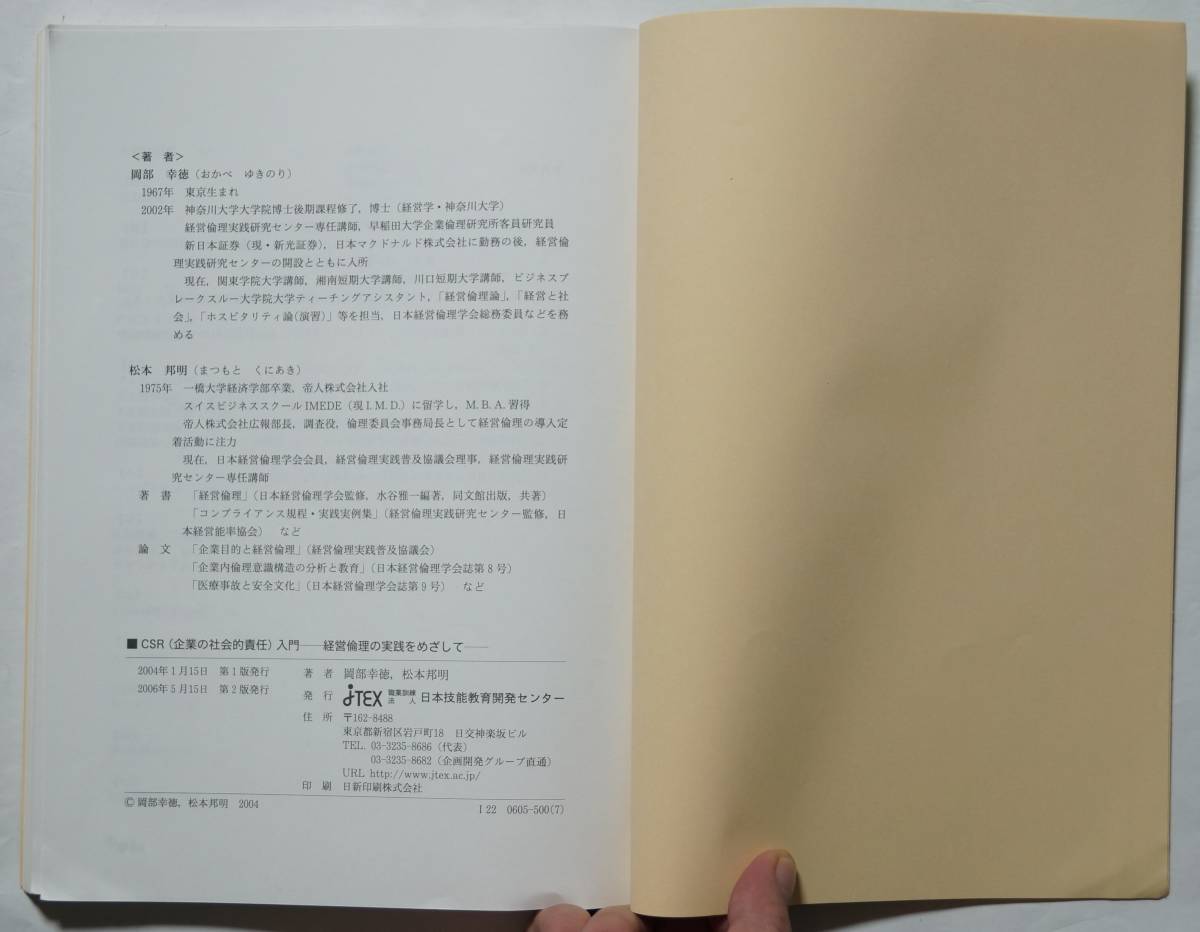 ＜著　者＞
岡部　幸徳（おかべ　ゆきのり）
1967年　東京生まれ
2002年　神奈川大学大学院博士後期課程修了，博士（経営学・神奈川大学）
経営倫理実践研究センター専任講師，早稲田大学企業倫理研究所客員研究員
新日本証券（現・新光証券），日本マクドナルド株式会社に勤務の後，経営倫
理実践研究センターの開設とともに入所
現在，関東学院大学講師，湘南短期大学講師，川口短期大学講師，ビジネスブ
レークスルー大学院大学ティーチングアシスタント，「経営倫理論」，「経営と社
会」，「ホスピタリティ論（演習）」等を担当，日本経営倫理学会総務委員などを務
める
松本　邦明（まつもと　くにあき）
1975年　一橋大学経済学部卒業，帝人株式会社入社
スイスビジネススクールIMEDE（現I. M. D.）に留学し，M. B. A. 習得
帝人株式会社広報部長，調査役，倫理委員会事務局長として経営倫理の導入定
着活動に注力
現在，日本経営倫理学会会員，経営倫理実践普及協議会理事，経営倫理実践研
究センター専任講師
著　書　「経営倫理」（日本経営倫理学会監修，水谷雅一編著，同文館出版，共著）
「コンプライアンス規程・実践実例集」（経営倫理実践研究センター監修，日
本経営能率協会）　など
論　文　「企業目的と経営倫理」（経営倫理実践普及協議会）
「企業内倫理意識構造の分析と教育」（日本経営倫理学会誌第8号）
「医療事故と安全文化」（日本経営倫理学会誌第9号）　など
■ CSR（企業の社会的責任）入門――経営倫理の実践をめざして――
2004年1月15日　第1版発行
2006年5月15日　第2版発行
著　者　岡部幸徳，松本邦明
発　行　JTEX 職業訓練法人 日本技能教育開発センター
住　所　〒162-8488
東京都新宿区岩戸町18　日交神楽坂ビル
TEL. 03-3235-8686（代表）
03-3235-8682（企画開発グループ直通）
URL http://www.jtex.ac.jp/
印　刷　日新印刷株式会社
© 岡部幸徳，松本邦明　2004
I 22　0605-500(7)